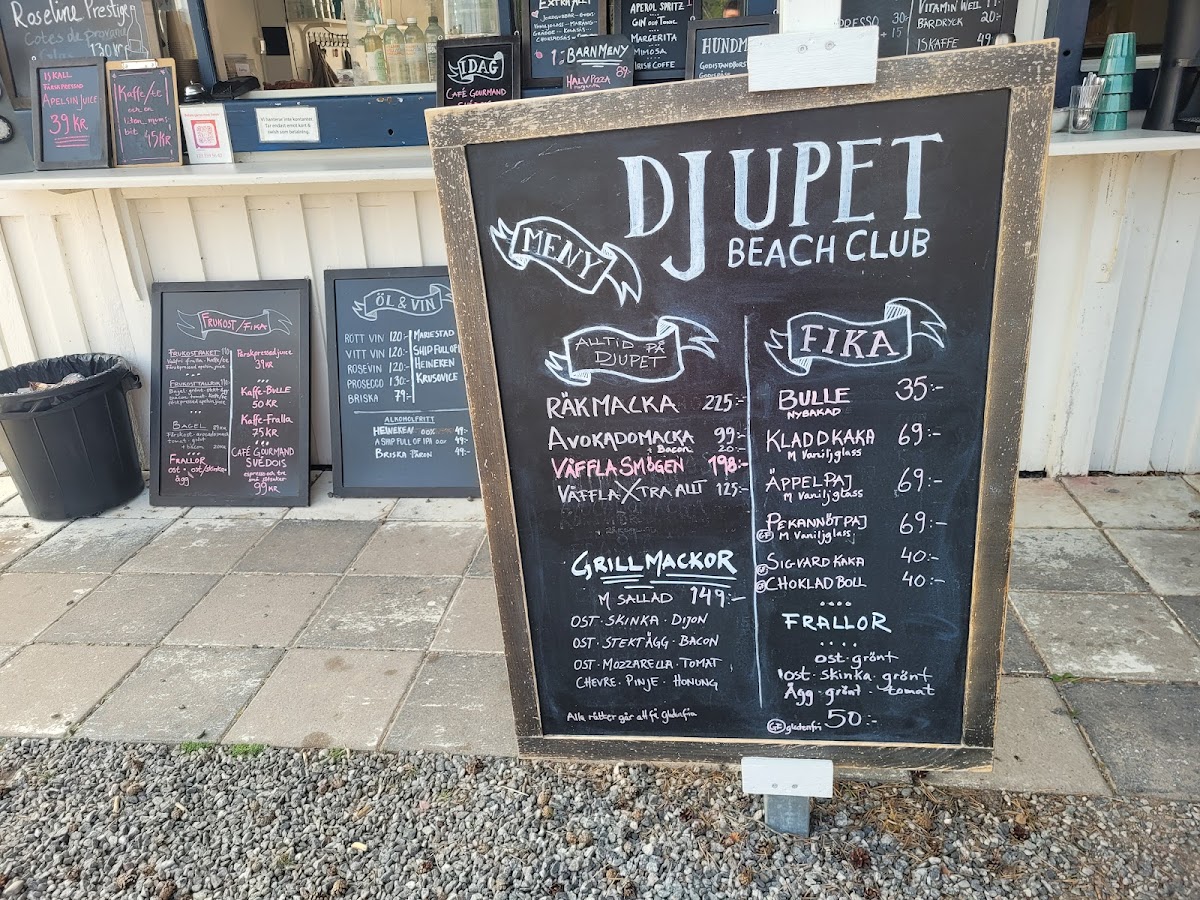 Roseline Prestige
Cotes de provance
Glas 130 kr
ISKALL
FÄRSKPRESSAD
APELSINJUICE
39 KR
Kaffe/te
och en
liten mums-
bit 45KR
IDAG
CAFÉ GOURMAND
EXTRA ALLT
BARNMENY
HALV PIZZA 89:-
APEROL SPRITZ
GIN OCH TONIC
MARGERITA
MIMOSA
IRISH COFFE
HUNDM
VITAMIN WELL
BÄRDRYCK
ISKAFFE
DJUPET
BEACH CLUB
MENY
ALLTID PÅ
DJUPET
RÄKMACKA 225:-
AVOKADOMACKA 99:-
+ Bacon 20:-
VÄFFLA SMÖGEN 198:-
VÄFFLA XTRA ALLT 125:-
GRILLMACKOR
M SALLAD 149:-
OST · SKINKA · DIJON
OST · STEKT ÄGG · BACON
OST · MOZZARELLA · TOMAT
CHEVRE · PINJE · HONUNG
Alla rätter går att få glutenfria
FIKA
BULLE 35:-
NYBAKAD
KLADDKAKA 69:-
M Vaniljglass
ÄPPELPAJ 69:-
M Vaniljglass
PEKANNÖTPAJ 69:-
GF M Vaniljglass.
SIGVARDKAKA 40:-
CHOKLADBOLL 40:-
FRALLOR
ost · grönt
ost · skinka · grönt
Ägg · grönt · tomat
GF glutenfri 50:-
FRUKOST/FIKA
FRUKOSTPAKET
FRUKOSTTALLRIK
BAGEL
FRALLOR
ost · ost/skinka
ägg
Färskpressad juice
39 KR
Kaffe-BULLE
50 KR
Kaffe-Fralla
75 KR
CAFÉ GOURMAND
SUÉDOIS
99 KR
ÖL & VIN
RÖTT VIN 120:-
VITT VIN 120:-
ROSÉVIN 120:-
PROSECCO 130:-
BRISKA 79:-
MARIESTAD
SHIP FULL OF I
HEINEKEN
KRUSOVICE
ALKOHOLFRITT
HEINEKEN 0.0% 49:-
A SHIP FULL OF IPA 49:-
BRISKA PÄRON 49:-